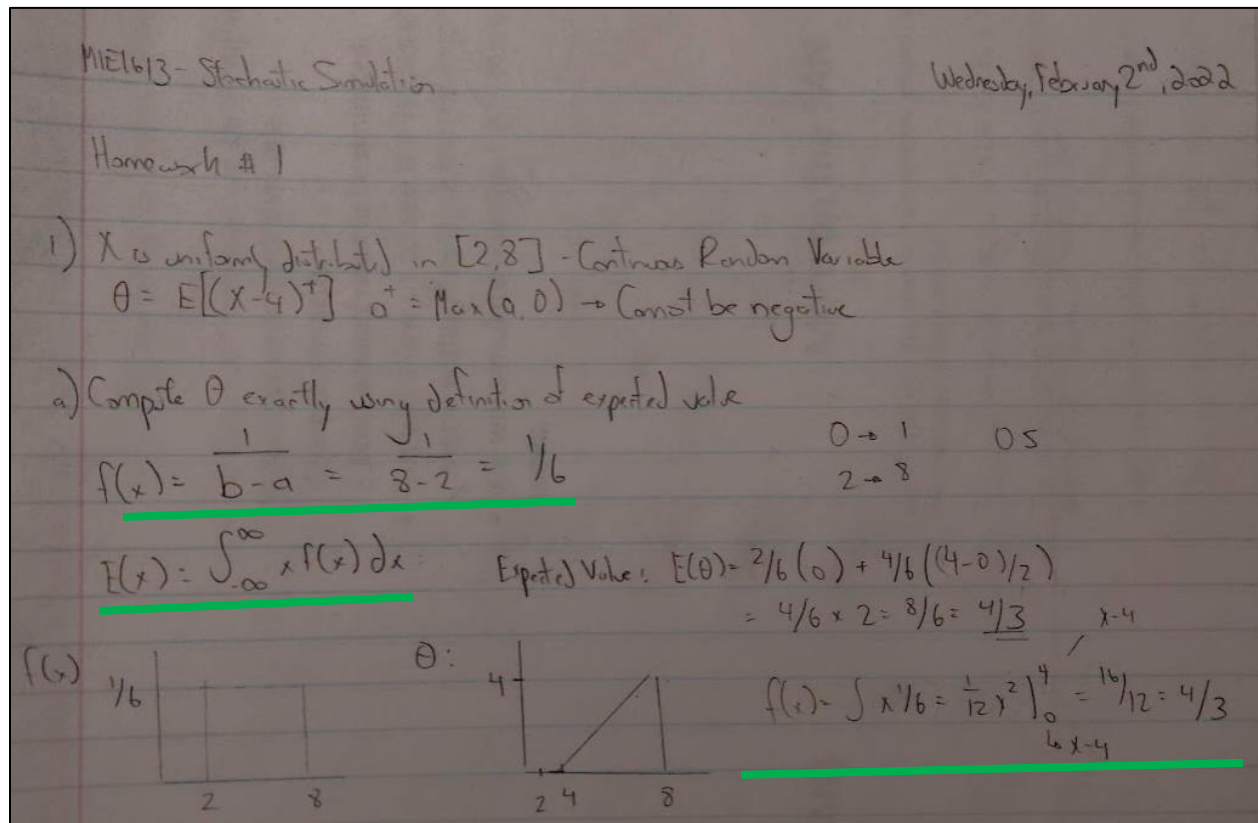 MIE1613 - Stochastic Simulation
Wednesday, February 2nd, 2022
Homework # 1
1) X is uniformly distributed in [2,8] - Continuous Random Variable
θ = E[(X-4)⁺] a⁺ = Max(a,0) → Cannot be negative
a) Compute θ exactly using definition of expected value
f(x) = 1/(b-a) = 1/(8-2) = 1/6
0 → 1 05
2 → 8
E(x) = ∫_-∞^∞ x f(x) dx
Expected Value: E(θ) = 2/6 (0) + 4/6 ((4-0)/2)
= 4/6 x 2 = 8/6 = 4/3
f(x)
1/6
2 8
θ:
4
2 4 8
x-4
f(x) = ∫ x 1/6 = 1/12 x² ]₀⁴ = 16/12 = 4/3
↳ x-4